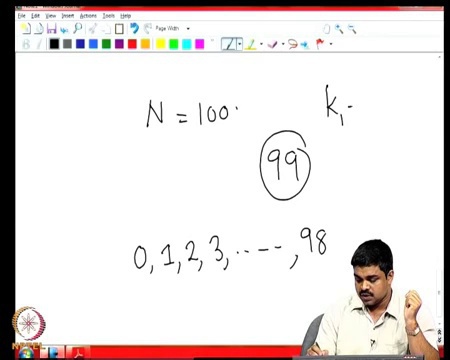 File Edit View Insert Actions Tools Help
Page Width
N = 100 k₁
99
0, 1, 2, 3, ----, 98